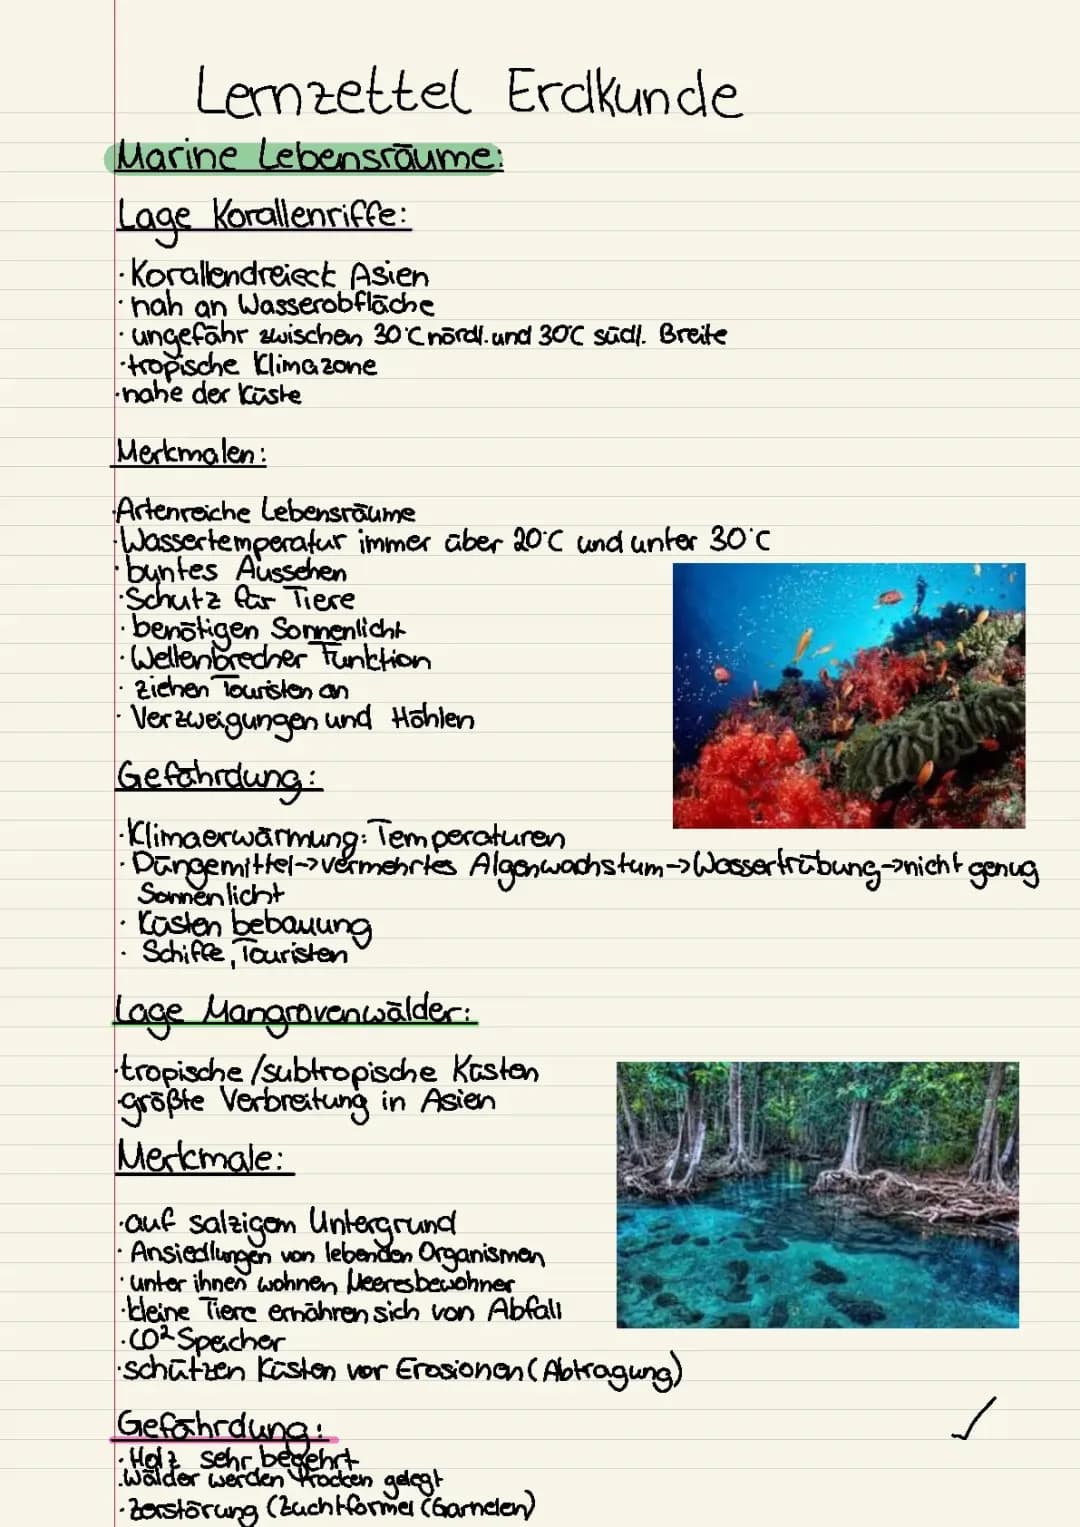 Lernzettel Erdkunde
Marine Lebensräume:
Lage Korallenriffe:
· Korallendreieck Asien
· nah an Wasserobfläche
· ungefähr zwischen 30°C nördl. und 30°C südl. Breite
· tropische Klimazone
· nahe der Küste
Merkmalen:
· Artenreiche Lebensräume
· Wassertemperatur immer über 20°C und unter 30°C
· buntes Aussehen
· Schutz für Tiere
· benötigen Sonnenlicht
· Wellenbrecher Funktion
· ziehen Touristen an
· Verzweigungen und Höhlen
Gefährdung:
· Klimaerwärmung: Temperaturen
· Düngemittel->vermehrtes Algenwachstum->Wassertrübung->nicht genug
Sonnenlicht
· Küsten bebauung
· Schiffe, Touristen
Lage Mangrovenwälder:
· tropische/subtropische Küsten
· größte Verbreitung in Asien
Merkmale:
· auf salzigem Untergrund
· Ansiedlungen von lebenden Organismen
· unter ihnen wohnen Meeresbewohner
· kleine Tiere ernähren sich von Abfall
· CO² Speicher
· schützen Küsten vor Erosionen (Abtragung)
Gefährdung:
· Holz sehr begehrt
· Wälder werden trocken gelegt
· Zerstörung (Zuchtformel (Garnelen)